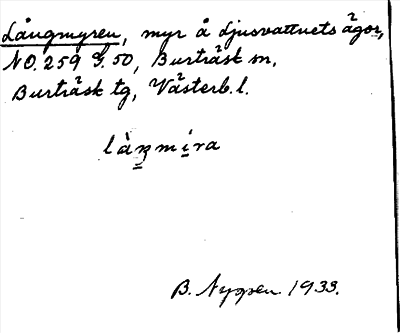 Långmyren, myr å Ljusvattnets ägor,
NO. 259 S. 50, Burträsk sn,
Burträsk tg, Västerb. l.
làŋmira
B. Nyggen 1933.